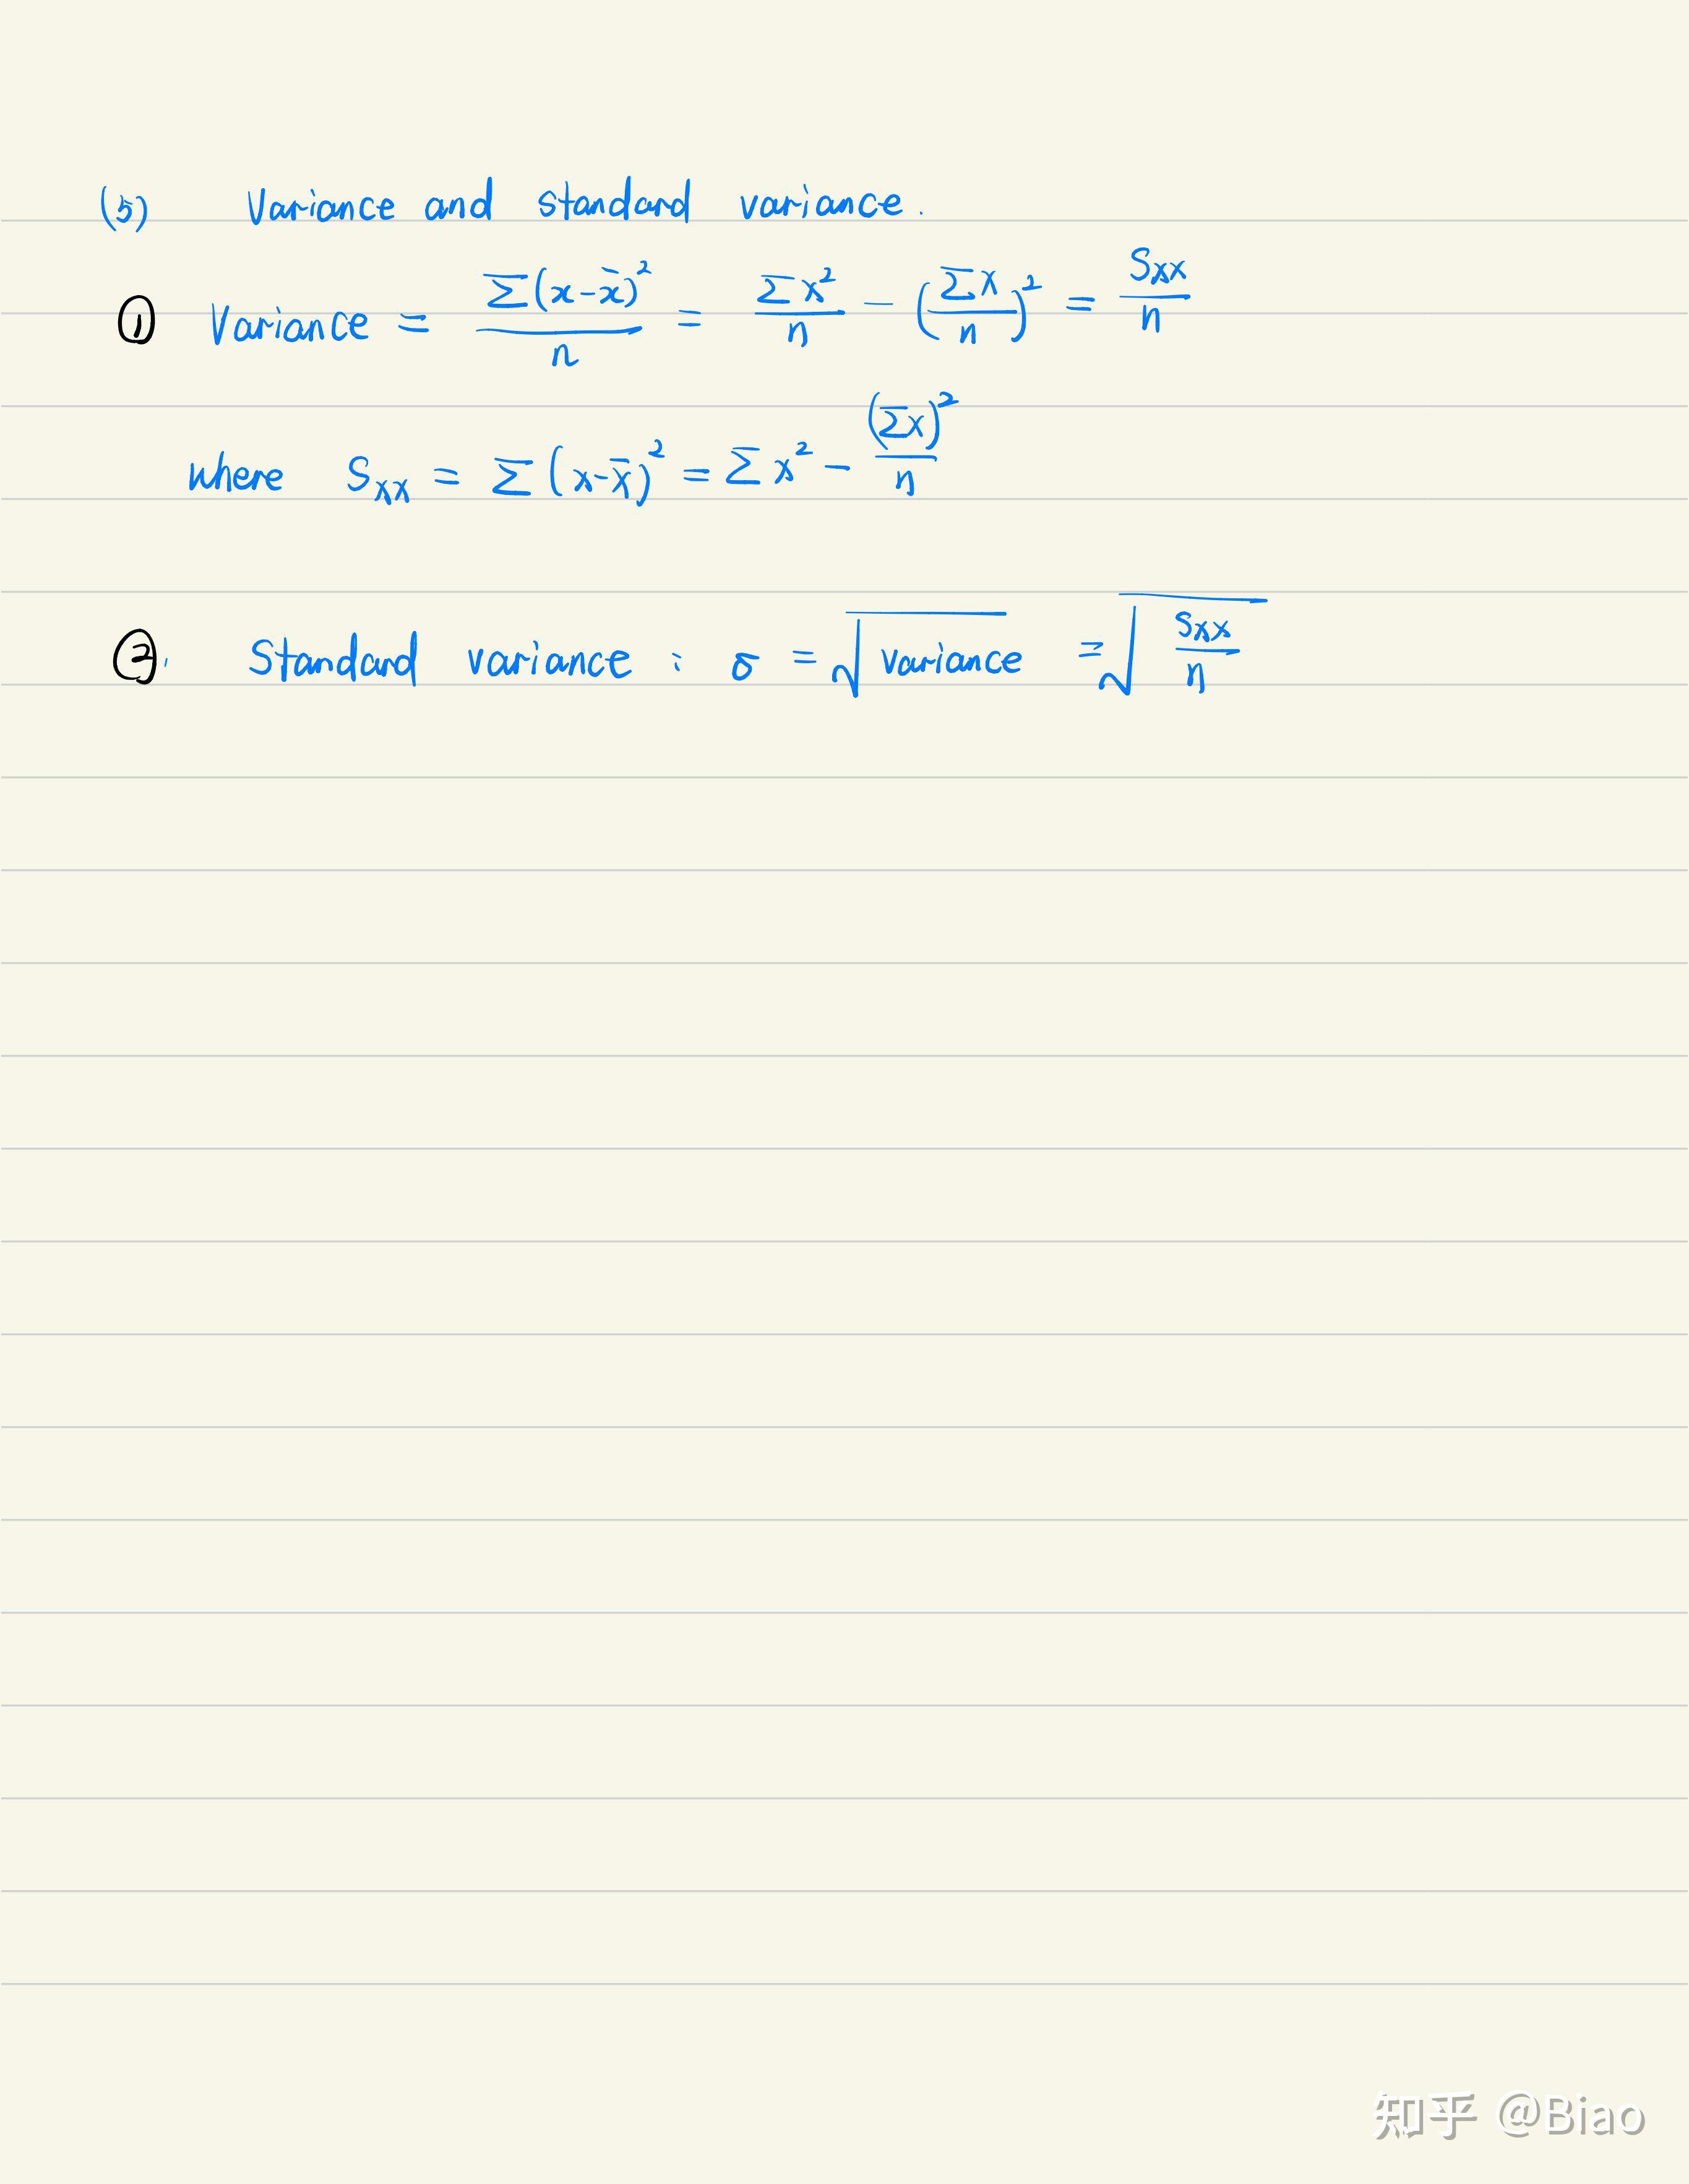 (5) Variance and standard variance.
① Variance = Σ(x-x̄)²/n = Σx²/n - (Σx/n)² = Sxx/n
where Sxx = Σ(x-x̄)² = Σx² - (Σx)²/n
②. Standard variance : σ = √variance = √(Sxx/n)
知乎 @Biao